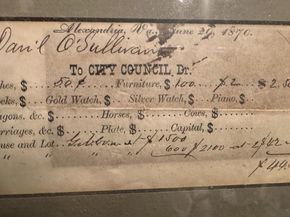 Alexandria, Va., June 29, 1870.
Dan'l O'Sullivan
To CITY COUNCIL, Dr.
ches, $ 50. Furniture, $ 100. $2 2.50
cks, $ Gold Watch, $ Silver Watch, $ Piano, $
agons, &c. $ Horses, $ Cows, $
rriages, &c. $ Plate, $ Capital, $
use and Lot, $1500
600 $2100